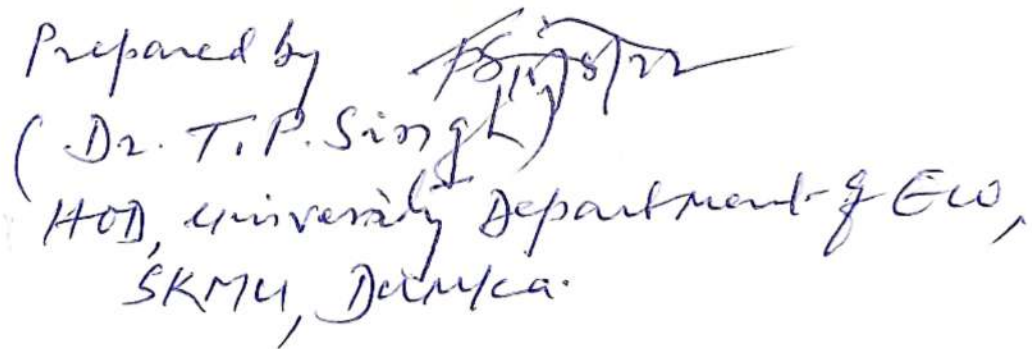 Prepared by
(Dr. T.P. Singh)
HOD, University Department of Eco,
SKMU, Dumka.